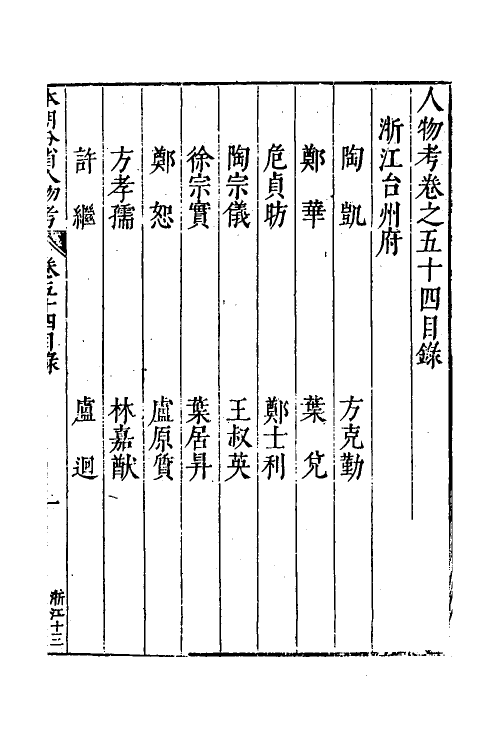 人物考卷之五十四目錄
浙江台州府
陶凱 方克勤
鄭華 葉兌
危貞昉 鄭士利
陶宗儀 王叔英
徐宗實 葉居昇
鄭恕 盧原質
方孝孺 林嘉猷
許繼 盧迥
本朝分省人物考 卷五十四目錄 一 浙江十三